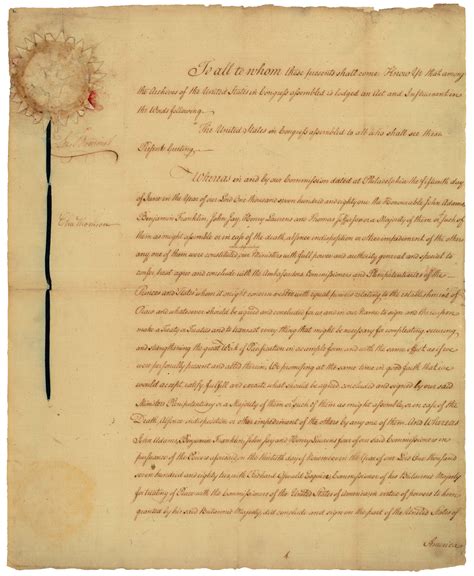 To all to whom these presents shall come Know Ye that among
the Archives of the United States in Congress assembled is lodged an Act and Instrument in
the Words following.
The United States in Congress assembled to all who shall see these
Presents Greeting.
Whereas in and by our Commission dated at Philadelphia the fifteenth day
Chas Thomson
of June in the Year of our Lord One thousand seven hundred and eighty one the Honourable John Adams
Benjamin Franklin, John Jay, Henry Laurens and Thomas Jefferson or a Majority of them or such of
them as might assemble or in case of the death, absence indisposition or other impediment of the others
any one of them were constituted our Ministers with full power and authority general and special to
confer treat agree and conclude with the Ambassadors Commissioners and Plenipotentiaries of the
Princes and States whom it might concern with equal powers relating to the establishment of
Peace and whatsoever should be agreed and concluded for us and in our Name to sign and thereupon
make a Treaty or Treaties and to transact every thing that might be necessary for compleating securing
and strengthening the great Work of Pacification in as ample form and with the same effect as if we
were personally present and acted therein. We promising at the same time in good faith that we
would accept ratify fulfill and execute what should be agreed concluded and signed by our said
Ministers Plenipotentiary or a Majority of them or such of them as might assemble, or in case of the
Death, Absence indisposition or other impediment of the others by any one of them. And Whereas
John Adams, Benjamin Franklin, John Jay and Henry Laurens four of our said Commissioners in
pursuance of the Powers aforesaid, on the thirtieth day of November in the Year of our Lord One thousand
seven hundred and eighty two with Richard Oswald Esquire Commissioner of his Britannic Majesty
for treating of Peace with the Commissioners of the United States of America in virtue of powers to him
granted by his said Britannic Majesty, did conclude and sign on the part of the United States of
America